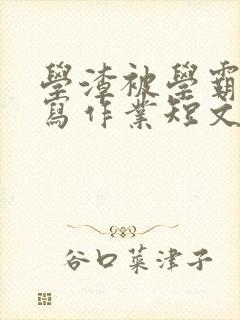 學渣被學霸
寫作業短文
谷口菜津子